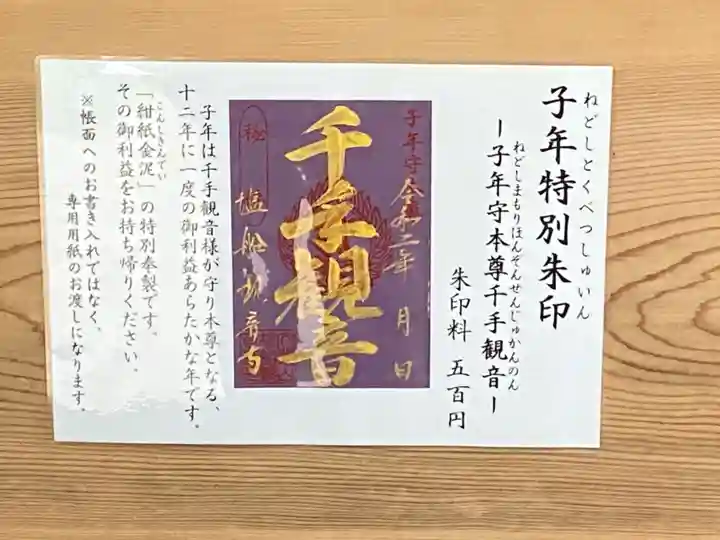 ねどしとくべつしゅいん
子年特別朱印
ねどしまもりほんぞんせんじゅかんのん
ー子年守本尊千手観音ー
朱印料 五百円
子年守
令和二年 月 日
千手観音
秘
塩船観音寺
子年は千手観音様が守り本尊となる、
十二年に一度の御利益あらたかな年です。
こんしきんでい
「紺紙金泥」の特別奉製です。
その御利益をお持ち帰りください。
※帳面へのお書き入れではなく、
専用用紙のお渡しになります。